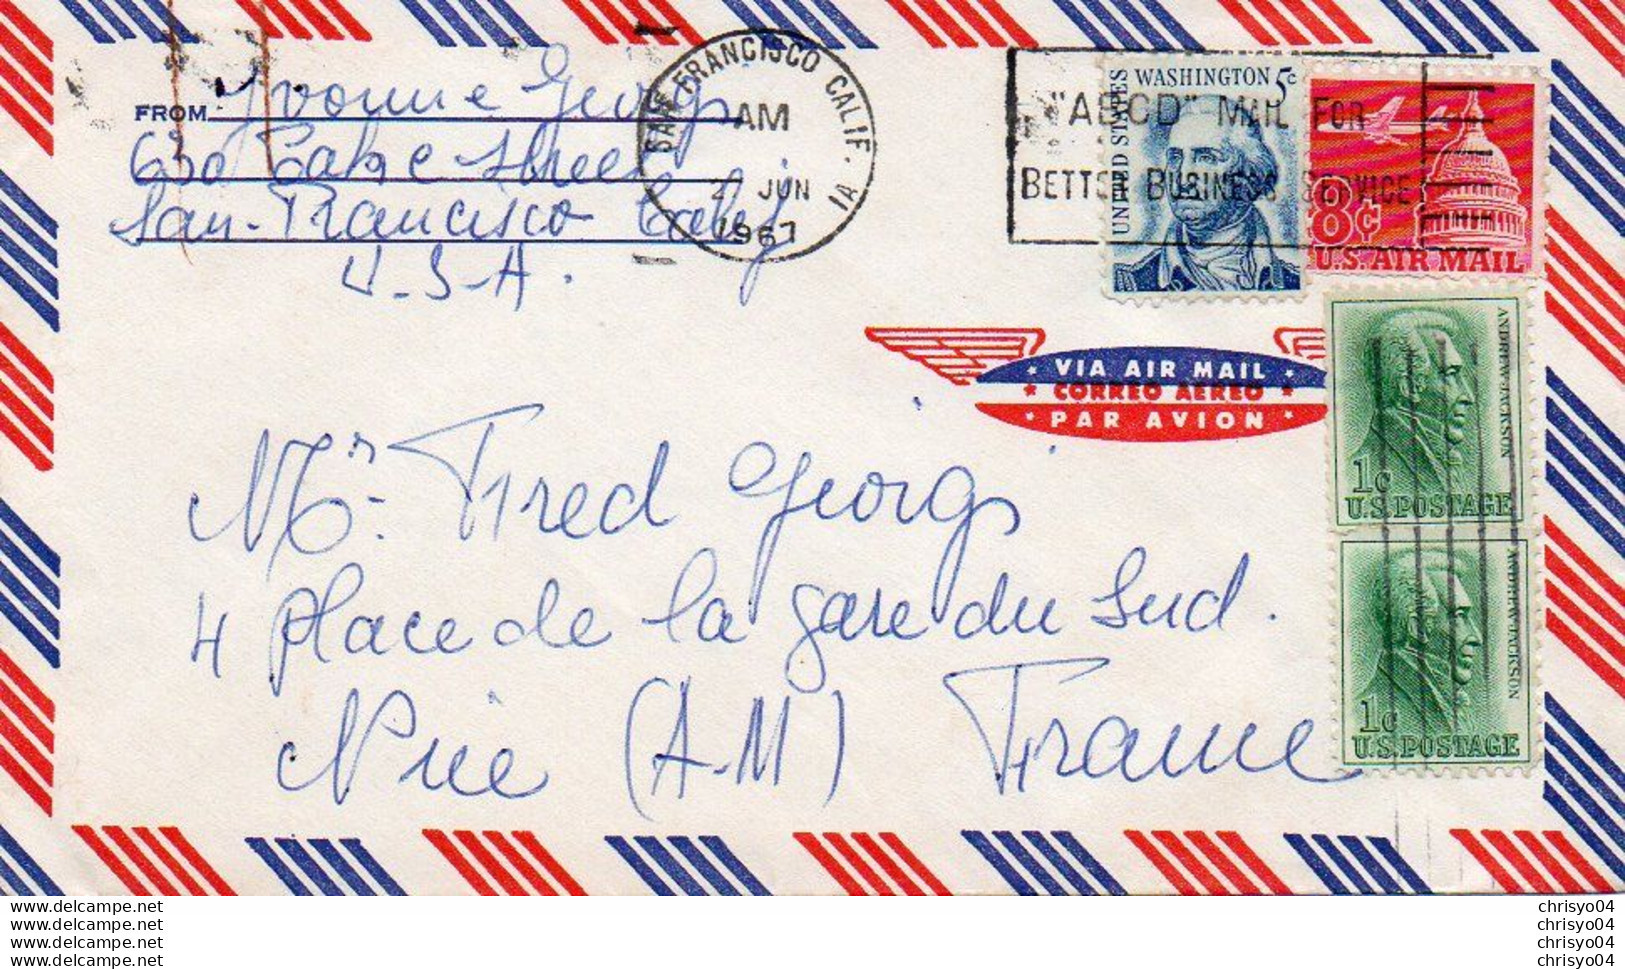 FROM Yvonne Georgs
650 Lake Street
San-Francisco Calif
U.S.A.
SAN FRANCISCO CALIF. IA
AM
JUN
1967
"ABCD" MAIL FOR
BETTER BUSINESS SERVICE
UNITED STATES
WASHINGTON 5c
8c
U.S. AIR MAIL
VIA AIR MAIL
CORREO AEREO
PAR AVION
ANDREW JACKSON
1c
U.S. POSTAGE
ANDREW JACKSON
1c
U.S. POSTAGE
Mr. Fred Georgs
4 place de la gare du Sud.
Nice (A-M) France
www.delcampe.net
www.delcampe.net
www.delcampe.net
www.delcampe.net
chrisyo04
chrisyo04
chrisyo04
chrisyo04